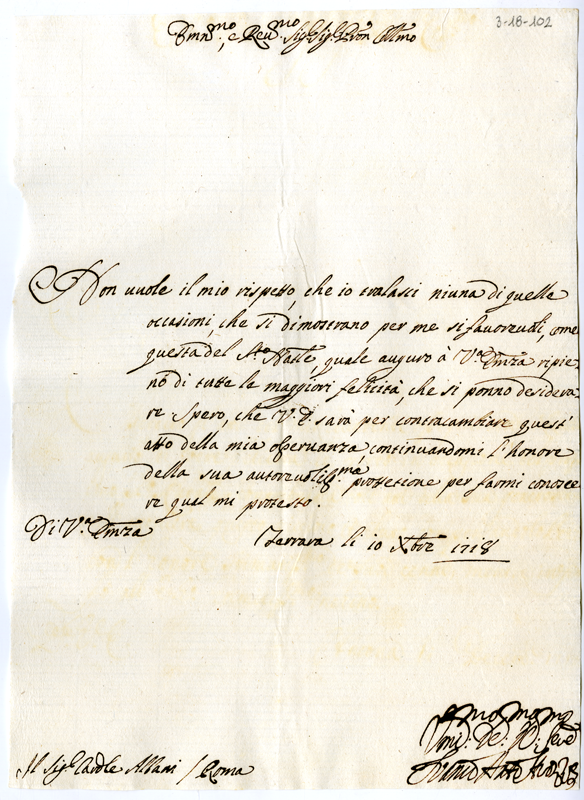 3-18-102
Emin.mo, e Reu.mo Sig.r Sig.r Pron Colmo
Non uuole il mio rispetto, che io tralasci niuna di quelle
occasioni, che si dimostrano per me si fauoreuoli, come
questa del S.to Nātle, quale auguro à V.a Em̄za ripie-
no di tutte le maggiori felicità, che si ponno desidera-
re. Spero, che V. E. sarà per contracambiare quest'
atto della mia osseruanza, continuandomi l'honore
della sua autoreuolis.ma protetione per farmi conosce-
re qual mi protesto.
Di V.a Em̄za
Ferrara li 10 Xbre 1718
Vm̄o. De. Ser
Il Sig.r Card.le Albani / Roma